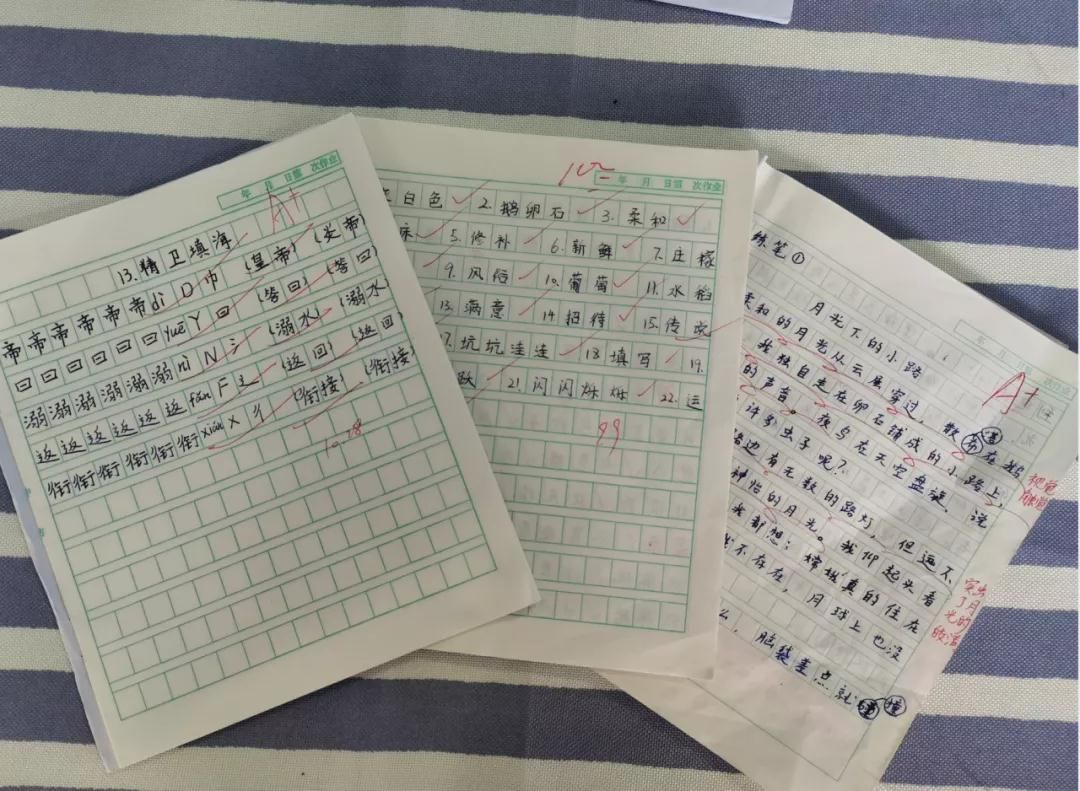 年 月 日第 次作业
A+
13.精卫填海
帝帝帝帝帝帝dì D 巾 (皇帝) (炎帝)
曰曰曰曰曰曰yuē Y 曰 (答曰) (答曰)
溺溺溺溺溺溺nì N 氵 (溺水) (溺水)
返返返返返返fǎn F 辶 (返回) (返回)
衔衔衔衔衔衔xián X 彳 (衔接) (衔接)
10.28
年 月 日第 次作业
白色 2.鹅卵石 3.柔和
5.修补 6.新鲜 7.庄稼
9.风俗 10.葡萄 11.水稻
13.满意 14招待 15.传
7.坑坑洼洼 18填写 19.
跃 21.闪闪烁烁 22.运
99
次作业
A+
练笔①
月光下的小路
柔和的月光从云层穿过,散 在
我独自走在卵石铺成的小路上,
的声音。夜鸟在天空盘旋,说
许多虫子呢?
路边有无数的路灯,但远不
神怡的月光。我仰起头看
我都想:嫦娥真的住在
不存在,月球上也没
么,脑袋差点就 撞
视觉
突出
了月
光的